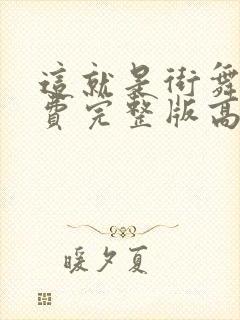 這就是街舞
費完整版高
暖夕夏